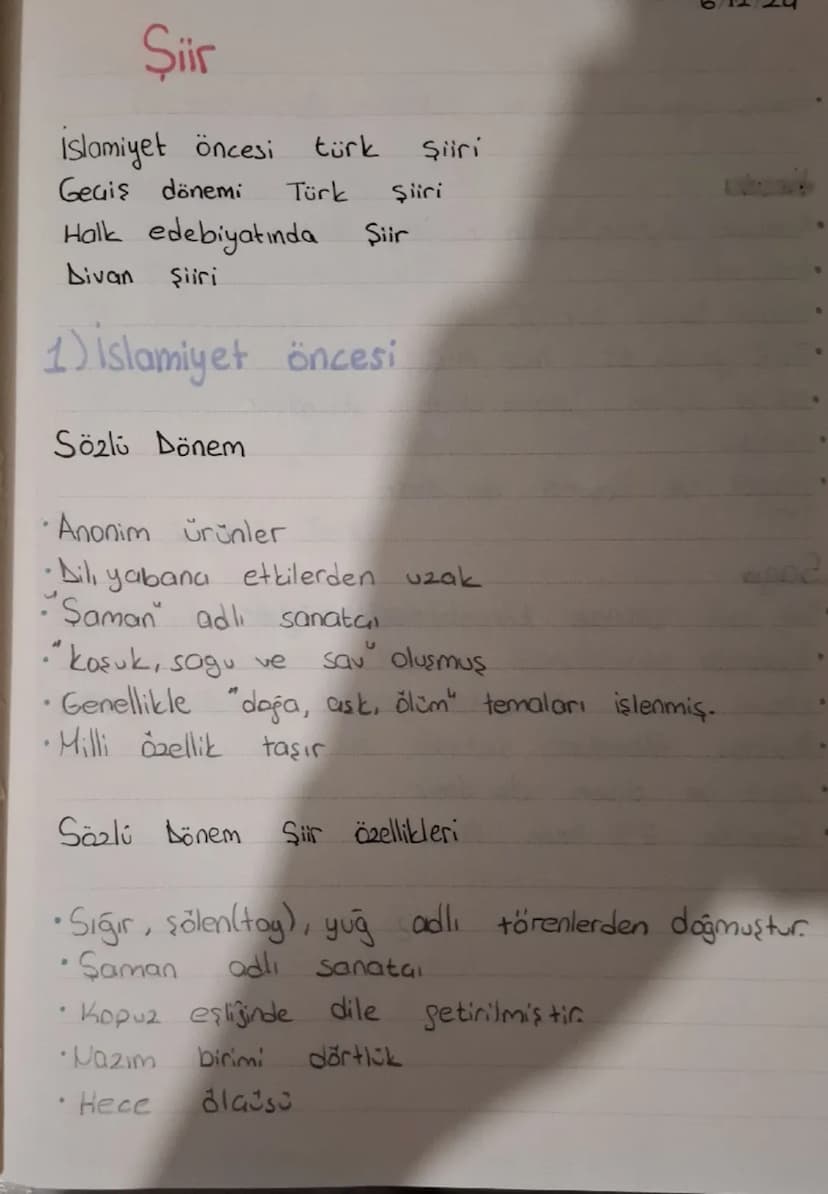 Şiir
İslamiyet öncesi türk şiiri
Geçiş dönemi Türk şiiri
Halk edebiyatında Şiir
Divan şiiri
1) İslamiyet öncesi
Sözlü Dönem
· Anonim ürünler
· Dili yabancı etkilerden uzak
· "Şaman" adlı sanatçı
· "koşuk, sagu ve sav" oluşmuş
· Genellikle "doğa, aşk, ölüm" temaları işlenmiş.
· Milli özellik taşır
Sözlü Dönem Şiir özellikleri
· Sığır, şölen(toy), yuğ adlı törenlerden doğmuştur.
· Şaman adlı sanatçı
· Kopuz eşliğinde dile getirilmiştir.
· Nazım birimi dörtlük
· Hece ölçüsü